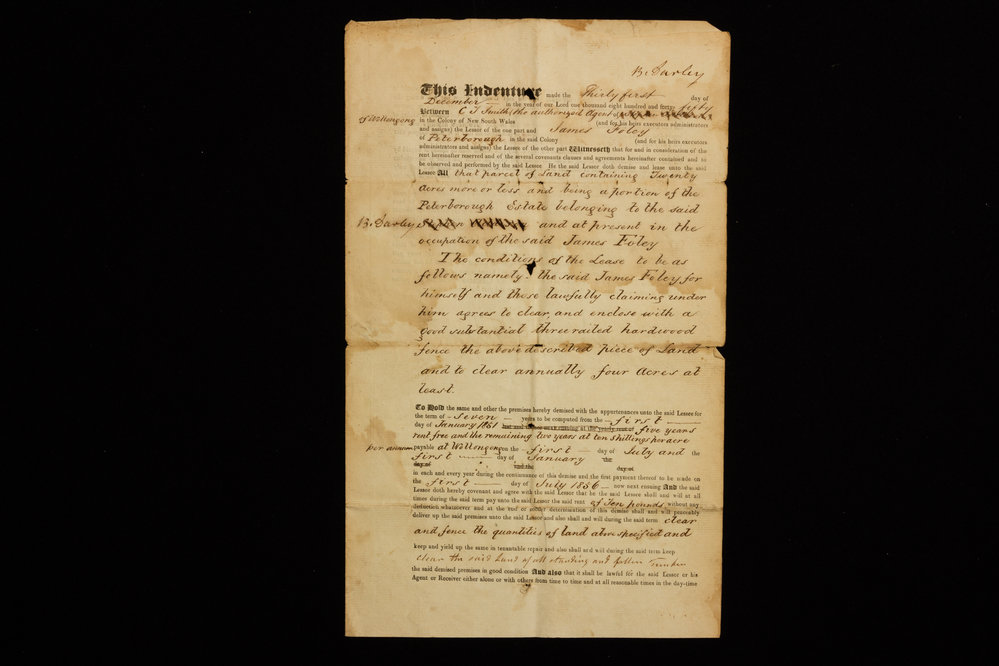 B. Darley
This Indenture made the Thirty first day of
December in the year of our Lord one thousand eight hundred and forty fifty
Between C T Smith, the authorized Agent of
of Wollongong in the Colony of New South Wales (and for his heirs executors administrators
and assigns) the Lessor of the one part and James Foley
of Peterborough in the said Colony (and for his heirs executors
administrators and assigns) the Lessee of the other part Witnesseth that for and in consideration of the
rent hereinafter reserved and of the several covenants clauses and agreements hereinafter contained and to
be observed and performed by the said Lessee He the said Lessor doth demise and lease unto the said
Lessee All that parcel of Land containing Twenty
Acres more or less and being a portion of the
Peterborough Estate belonging to the said
B. Darley and at present in the
occupation of the said James Foley
The conditions of the Lease to be as
follows namely. the said James Foley, for
himself and those lawfully claiming under
him agrees to clear, and enclose with a
good substantial three railed hardwood
fence the above described piece of Land
and to clear annually four Acres at
least.
To Hold the same and other the premises hereby demised with the appurtenances unto the said Lessee for
the term of Seven years to be computed from the first
day of January 1851 last and thence next ensuing at the yearly rent of five years
rent free and the remaining two years at ten shillings per acre
per annum payable at Wollongong on the first day of July and the
first day of January the
day of and the day of
in each and every year during the continuance of this demise and the first payment thereof to be made on
the first day of July 1856 now next ensuing And the said
Lessee doth hereby covenant and agree with the said Lessor that he the said Lessee shall and will at all
times during the said term pay unto the said Lessor the said rent of Ten pounds without any
deduction whatsoever and at the end or sooner determination of this demise shall and will peaceably
deliver up the said premises unto the said Lessor and also shall and will during the said term clear
and fence the quantities of land above specified and
keep and yield up the same in tenantable repair and also shall and will during the said term keep
clear the said Land of all standing and fallen Timber
the said demised premises in good condition And also that it shall be lawful for the said Lessor or his
Agent or Receiver either alone or with others from time to time and at all reasonable times in the day-time